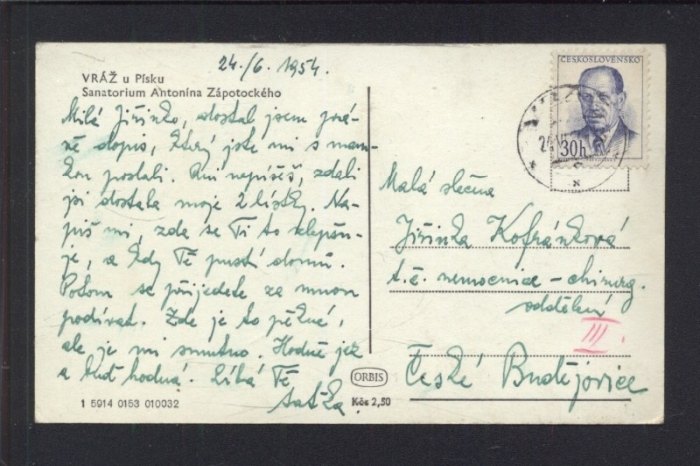 24./6. 1954.
VRÁŽ u Písku
Sanatorium Antonína Zápotockého
Milá Jiřinko, dostal jsem prá-
vě dopis, který jste mi s mam-
kou poslali. Ani nepíšeš, zdali
jsi dostala moje 2 lístky. Na-
piš mi, zda se Ti to zlepšu-
je, a kdy Tě pustí domů.
Potom se přijedete za mnou
podívat. Zde je to pěkné,
ale je mi smutno. Hodně jez
a buď hodná. Líbá Tě
taťka
1 5914 0153 010032
ORBIS
Kčs 2,50
ČESKOSLOVENSKO
30h
Malá slečna
Jiřinka Kofránková
t. č. nemocnice - chirurg.
oddělení
III.
České Budějovice